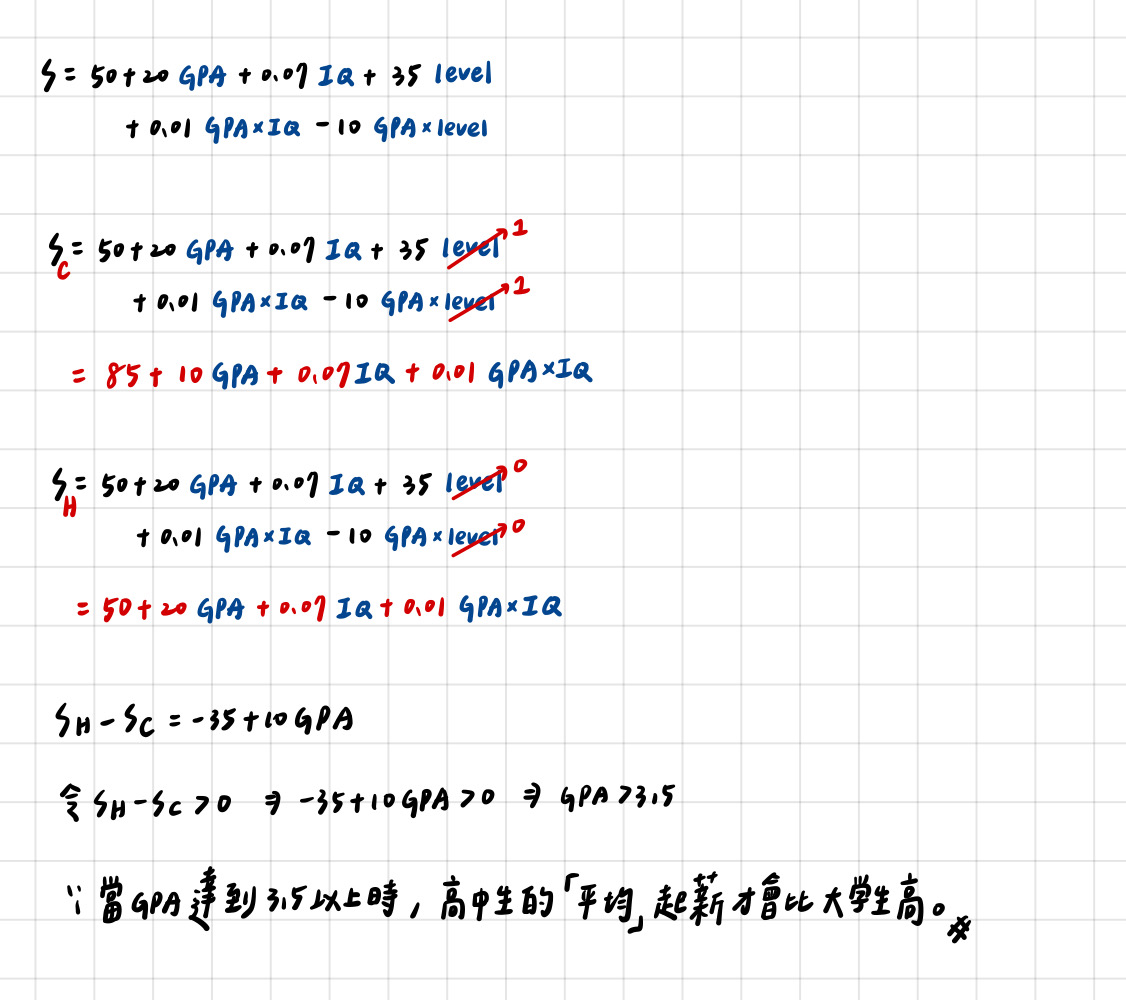 S = 50 + 20 GPA + 0.07 IQ + 35 level
+ 0.01 GPA×IQ - 10 GPA×level
S_C = 50 + 20 GPA + 0.07 IQ + 35 level 1
+ 0.01 GPA×IQ - 10 GPA×level 1
= 85 + 10 GPA + 0.07 IQ + 0.01 GPA×IQ
S_H = 50 + 20 GPA + 0.07 IQ + 35 level 0
+ 0.01 GPA×IQ - 10 GPA×level 0
= 50 + 20 GPA + 0.07 IQ + 0.01 GPA×IQ
S_H - S_C = -35 + 10 GPA
令 S_H - S_C > 0 ⇒ -35 + 10 GPA > 0 ⇒ GPA > 3.5
∵ 當 GPA 達到 3.5 以上時，高中生的「平均」起薪才會比大学生高。#